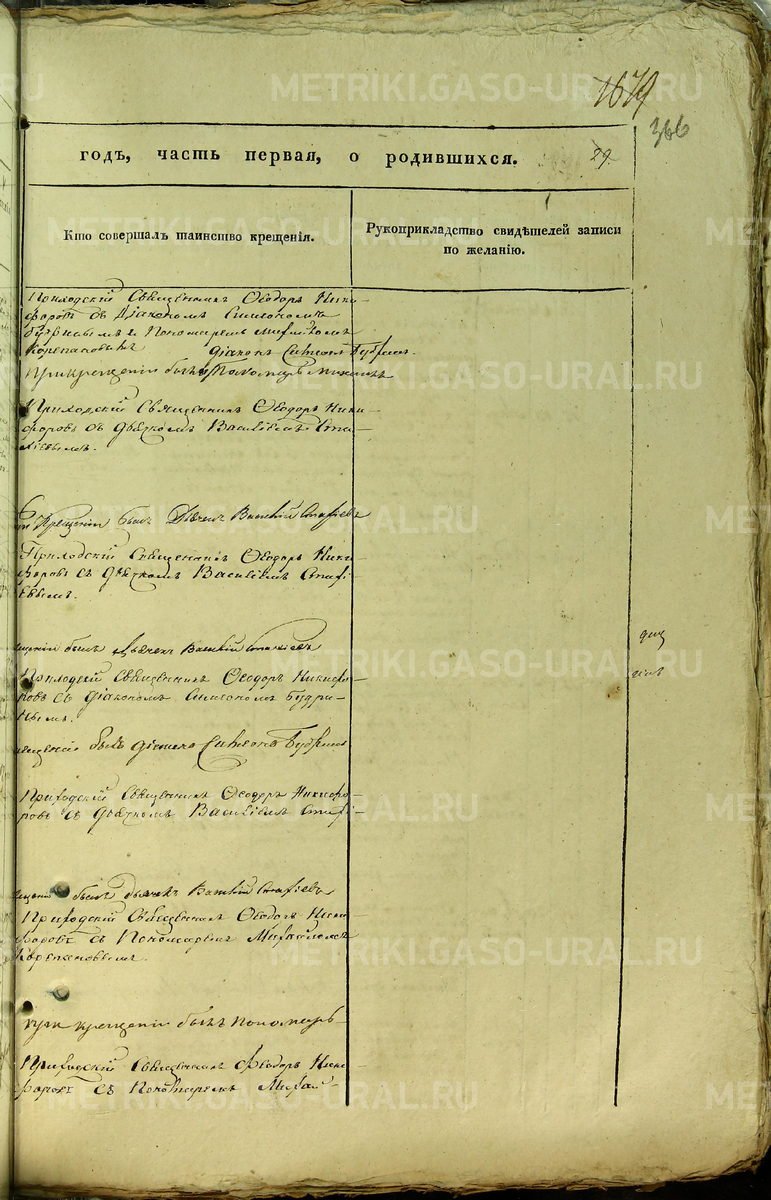 METRIKI.GASO-URAL.RU
1679
366
годъ, часть первая, о родившихся.
29.
Кто совершалъ таинство крещенія.
Рукоприкладство свидѣтелей записи
по желанію.
Приходскій Священникъ Ѳеодоръ Ники-
форовъ съ Діакономъ Симеономъ
и Пономаремъ Михайломъ
діаконъ Симеонъ
При крещеніи былъ Пономарь Михаилъ
Приходскій Священникъ Ѳеодоръ Ники-
форовъ съ Дьячкомъ Василіемъ Стаѳі-
евымъ.
При Крещеніи былъ Дьячекъ Василій Стафіевъ
Приходскій Священникъ Ѳеодоръ Ники-
форовъ съ дьячкомъ Василіемъ Стафі-
евымъ.
щеніи былъ дьячекъ Василій Стафіевъ
Приходскій Священникъ Ѳеодоръ Никифо-
ровъ съ діакономъ Симеономъ Будри-
нымъ.
щеніи былъ діаконъ Симеонъ Будринъ
Приходскій Священникъ Ѳеодоръ Никифо-
ровъ съ Дьячкомъ Василіемъ Стафі-
щеніи былъ дьячекъ Василій Стафіевъ
Приходскій Священникъ Ѳеодоръ Ники-
форовъ съ Пономаремъ Михайломъ
Корепановымъ.
при крещеніи былъ пономарь
Приходскій Священникъ Ѳеодоръ Ники-
форовъ съ Пономаремъ Михай-